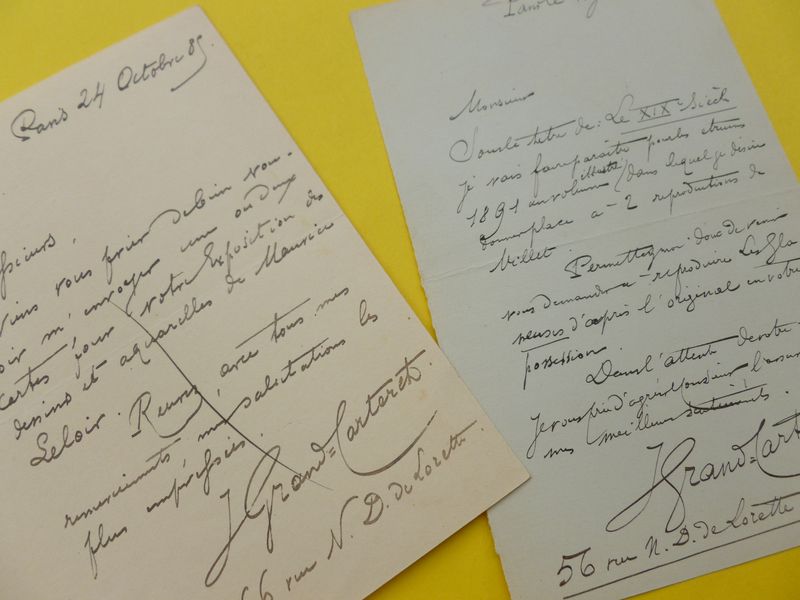 Paris 24 Octobre 85.
ssieurs,
viens vous prier de bien vou-
oir m'envoyer une ou deux
cartes pour votre Exposition des
dessins et aquarelles de Maurice
Leloir. Recevez, avec tous mes
remerciements, mes salutations les
plus empressées.
J Grand=Carteret.
66 rue N. D. de Lorette.
Monsieur
Sous le titre de: Le XIXe Siècle
je vais faire paraître pour les étrennes
1891 un volume illustré dans lequel je désire
donner place a 2 reproductions de
Millet.
Permettez moi donc de venir
vous demander a reproduire Les Gla
neuses d'après l'original en votre
possession.
Dans l'attente de votre
Je vous prie d'agréer Monsieur l'assur
mes meilleurs sentiments.
J Grand=Cart
56 rue N. D. de Lorette